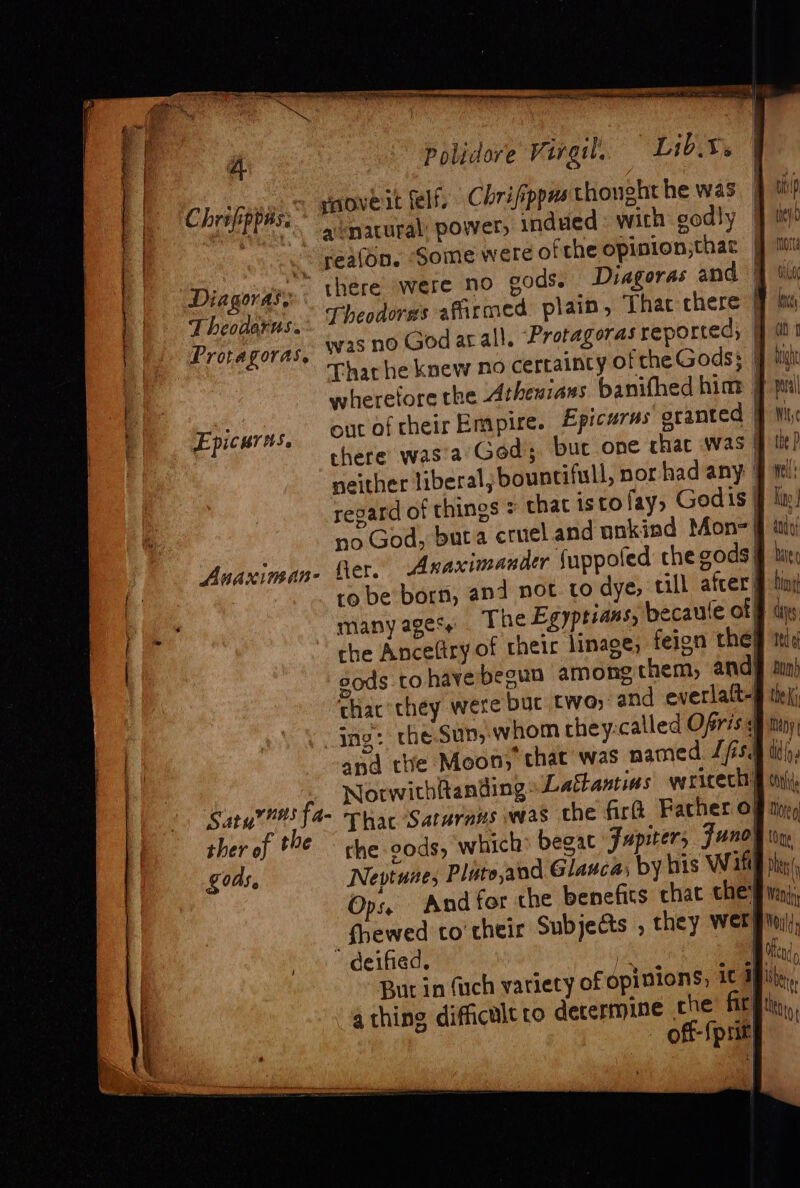 4 Polidore Virgil. Lib.I.
Chrisippus. moveit self. Chrisippus thought he was
a natural power, indued with godly
reason. Some were of the opinion, that
there were no gods. Diagoras and
Diagoras. Theodorus affirmed plain, That there
Theodorus. was no God at all. Protagoras reported,
Protagoras. That he knew no certainty of the Gods;
wherefore the Athenians banished him
out of their Empire. Epicurus granted
Epicurus. there was a God; but one that was
neither liberal, bountifull, nor had any
regard of things: that is to say, God is
no God, but a cruel and unkind Mon-
Anaximan- ster. Anaximander supposed the gods
to be born, and not to dye, till after
many ages. The Egyptians, because of
the Ancestry of their linage, feign the
gods to have begun among them, and
that they were but two, and everlast-
ing: the Sun, whom they called Osiris
and the Moon, that was named Isis.
Notwithstanding Lactantius writeth
Saturnus fa- That Saturnus was the first Father of
ther of the the gods, which begat Jupiter, Juno
gods. Neptune, Pluto, and Glauca, by his Wife
Ops. And for the benefits that the
shewed to their Subjects, they wer
deified.
But in such variety of opinions, it i
a thing difficult to determine the fir
off-spri